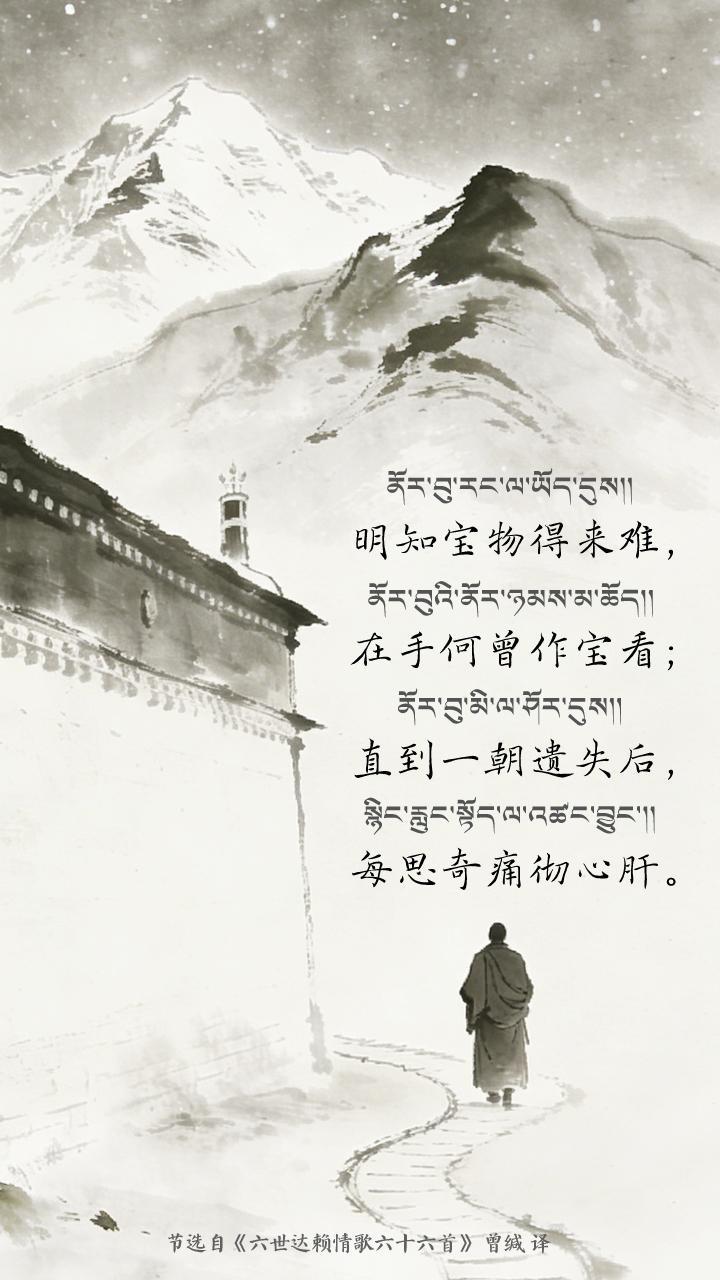 ནོར་བུ་རང་ལ་ཡོད་དུས།།
明知宝物得来难，
ནོར་བུའི་ནོར་ཉམས་མ་ཆོད།།
在手何曾作宝看；
ནོར་བུ་མི་ལ་ཤོར་དུས།།
直到一朝遗失后，
སྙིང་རླུང་སྟོད་ལ་འཚང་བྱུང་།།
每思奇痛彻心肝。
节选自《六世达赖情歌六十六首》 曾缄 译